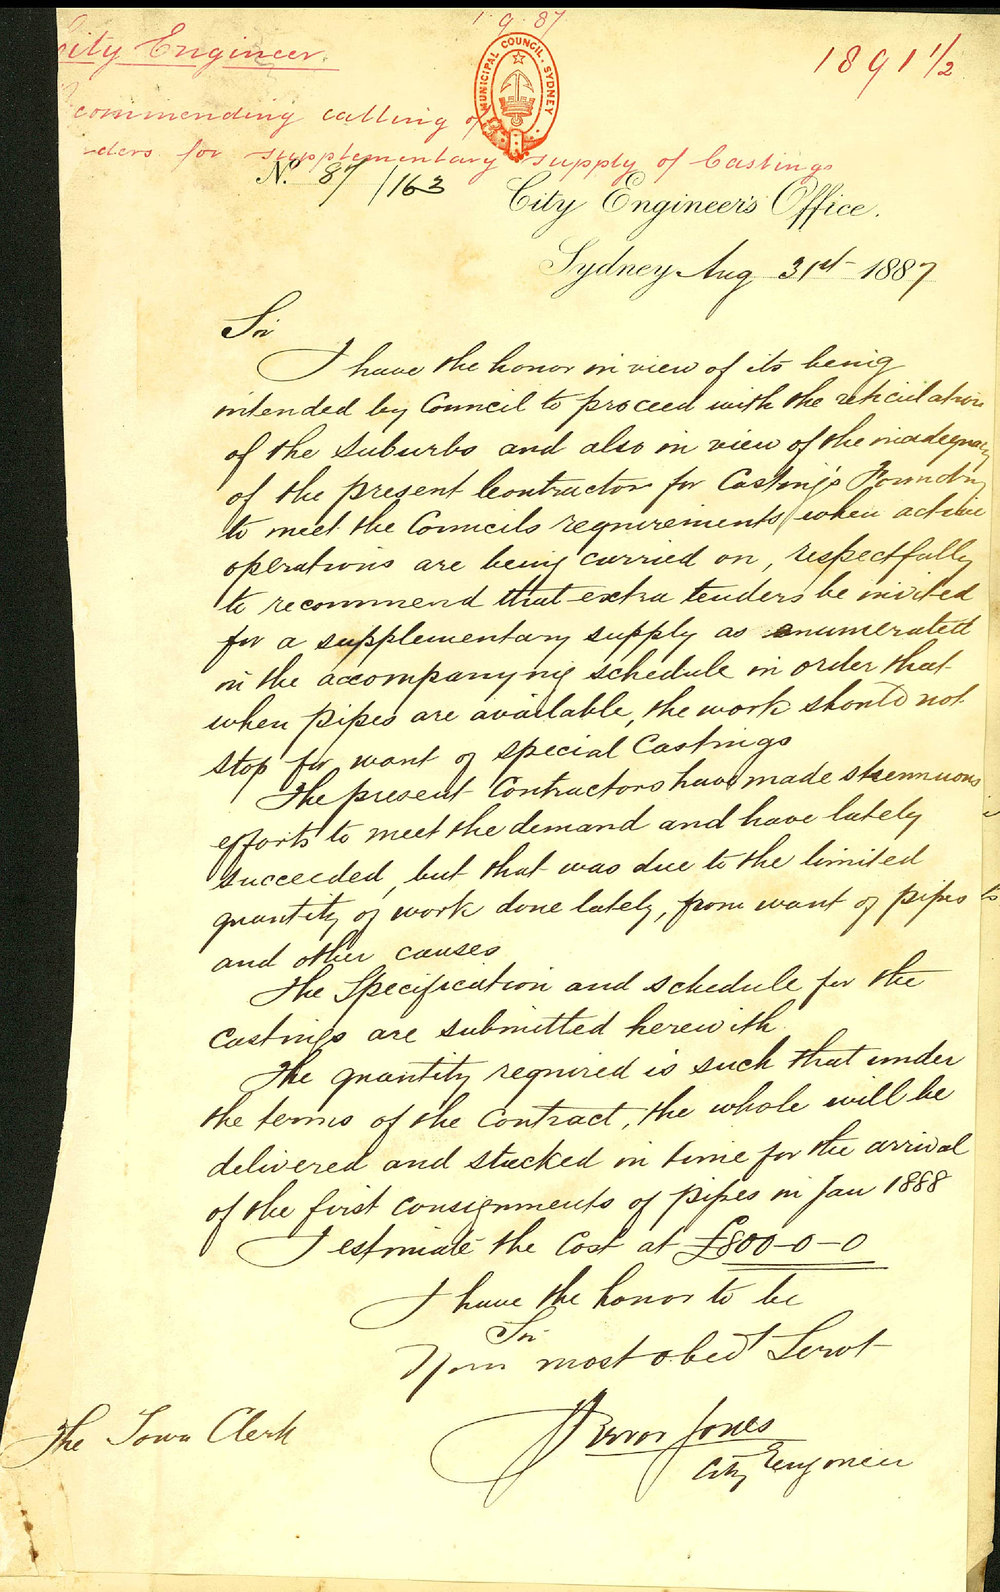 1.9.87
City Engineer.
1891 1/2
commending calling of
nders for supplementary supply of Castings
MUNICIPAL COUNCIL. SYDNEY
No. 87/163
City Engineer's Office.
Sydney Aug 31st 1887
Sir
I have the honor in view of its being
intended by Council to proceed with the reticulation
of the suburbs and also in view of the inadequacy
of the present Contractors for Castings Foundry
to meet the Councils requirements, when active
operations are being carried on, respectfully
to recommend that extra tenders be invited
for a supplementary supply as enumerated
in the accompanying schedule in order that
when pipes are available, the work should not
stop for want of special Castings
The present Contractors have made strennuous
efforts to meet the demand and have lately
succeeded, but that was due to the limited
quantity of work done lately, from want of pipes
and other causes
The Specification and schedule for the
castings are submitted herewith
The quantity required is such that under
the terms of the Contract, the whole will be
delivered and stacked in time for the arrival
of the first consignments of pipes in Jan 1888
I estimate the Cost at £800-0-0
I have the honor to be
Sir
Your most obedt Servt
Trevor Jones
City Engineer
The Town Clerk